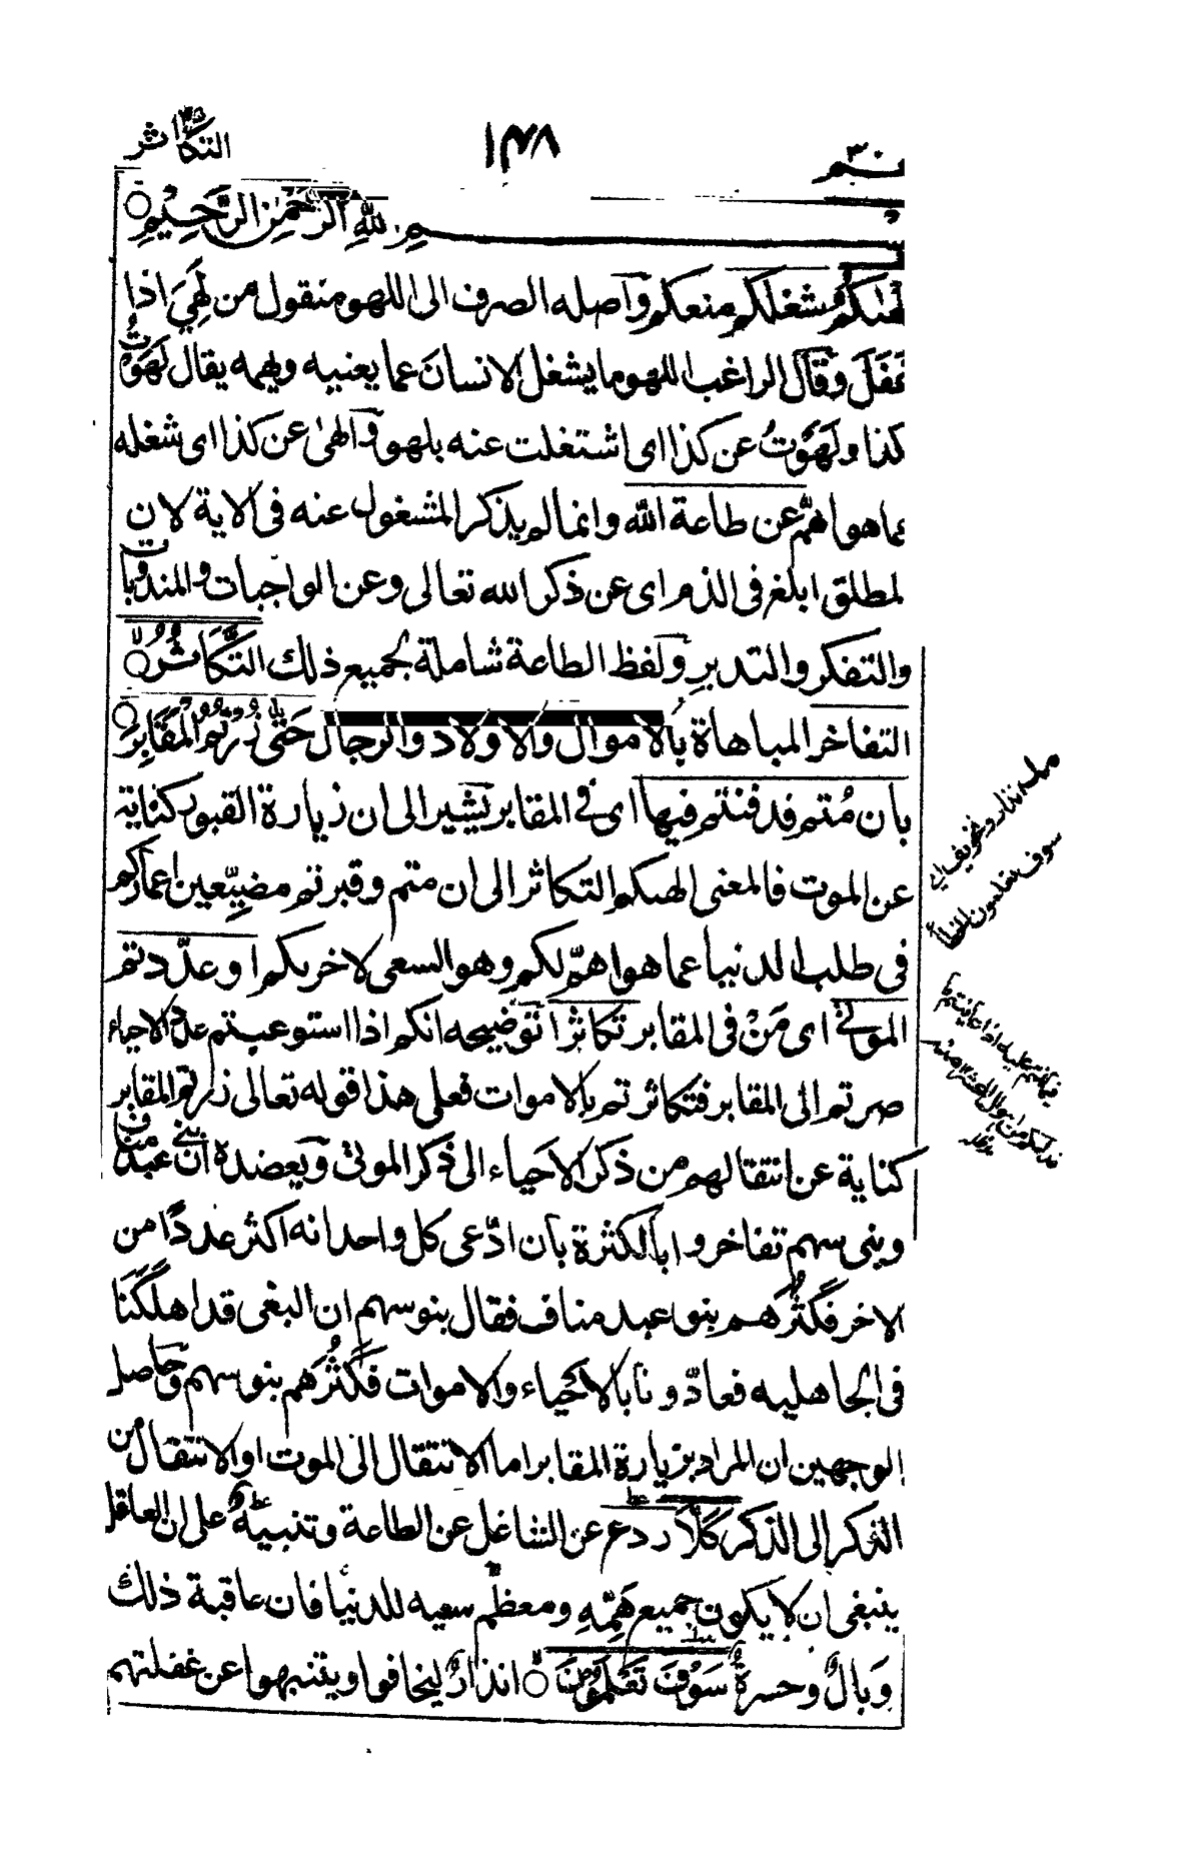 عم ٣٠ ١٣٨ التكاثر
بسم الله الرحمن الرحيم
الهىكم شغلكم منعكم وآصله الصرف الى اللهو منقول من لَهِيَ اذا
غفل وقال الراغب اللهو ما يشغل الانسان عما يعنيه ويهمه يقال لهوتُ
كذا ولهوتُ عن كذا اى اشتغلت عنه بلهو وآلهىٰ عن كذا اى شغله
عما هو اهمّ عن طاعة الله وانما لم يذكر المشغول عنه فى الاية لان
المطلق ابلغ فى الذم اى عن ذكر الله تعالى وعن الواجبات والمندوبات
والتفكر والتدبر ولفظ الطاعة شاملة لجميع ذلك التَّكَاثُرُ
التفاخر المباهاة بالاموال والاولاد والرجال حَتّٰى زُرْتُمُ الْمَقَابِرَ
بان مُتم فدفنتم فيها اى فى المقابر يشير الى ان زيارة القبور كناية
عن الموت فالمعنى الهىكم التكاثر الى ان متم وقبرتم مضيّعين اعماركم
فى طلب الدنيا عما هو اهمّ لكم وهو السعى لاخرىكم او عدّدتم
الموتىٰ اى مَنْ فى المقابر تكاثراً توضيحه انكم اذا استوعبتم عدد الاحياء
صرتم الى المقابر فتكاثرتم بالاموات فعلى هذا قوله تعالى زرتم المقابر
كناية عن انتقالهم من ذكر الاحياء الى ذكر الموتىٰ ويعضده ان بنى عبد مناف
وبنى سهم تفاخروا بالكثرة بان ادّعى كل واحد انه اكثر عددًا من
الاخر فكَثُرَهم بنو عبد مناف فقال بنو سهم ان البغى قد اهلكَنَا
فى الجاهليه فعادّونا بالاحياء والاموات فكَثُرَهم بنو سهم وحاصل
الوجهين ان المراد بزيارة المقابر اما الانتقال الى الموت او الانتقال من
الذكر الى الذكر كَلَّا ردع عن التشاغل عن الطاعة وتنبيهٌ على ان العاقل
ينبغى ان لا يكون جميع هَمِّهِ ومعظم سعيه للدنيا فان عاقبة ذلك
وَبالٌ وحسرةٌ سَوْفَ تَعْلَمُوْنَ انذارٌ ليخافوا ويتنبهوا عن غفلتهم
سوف تعلمون الخطأ